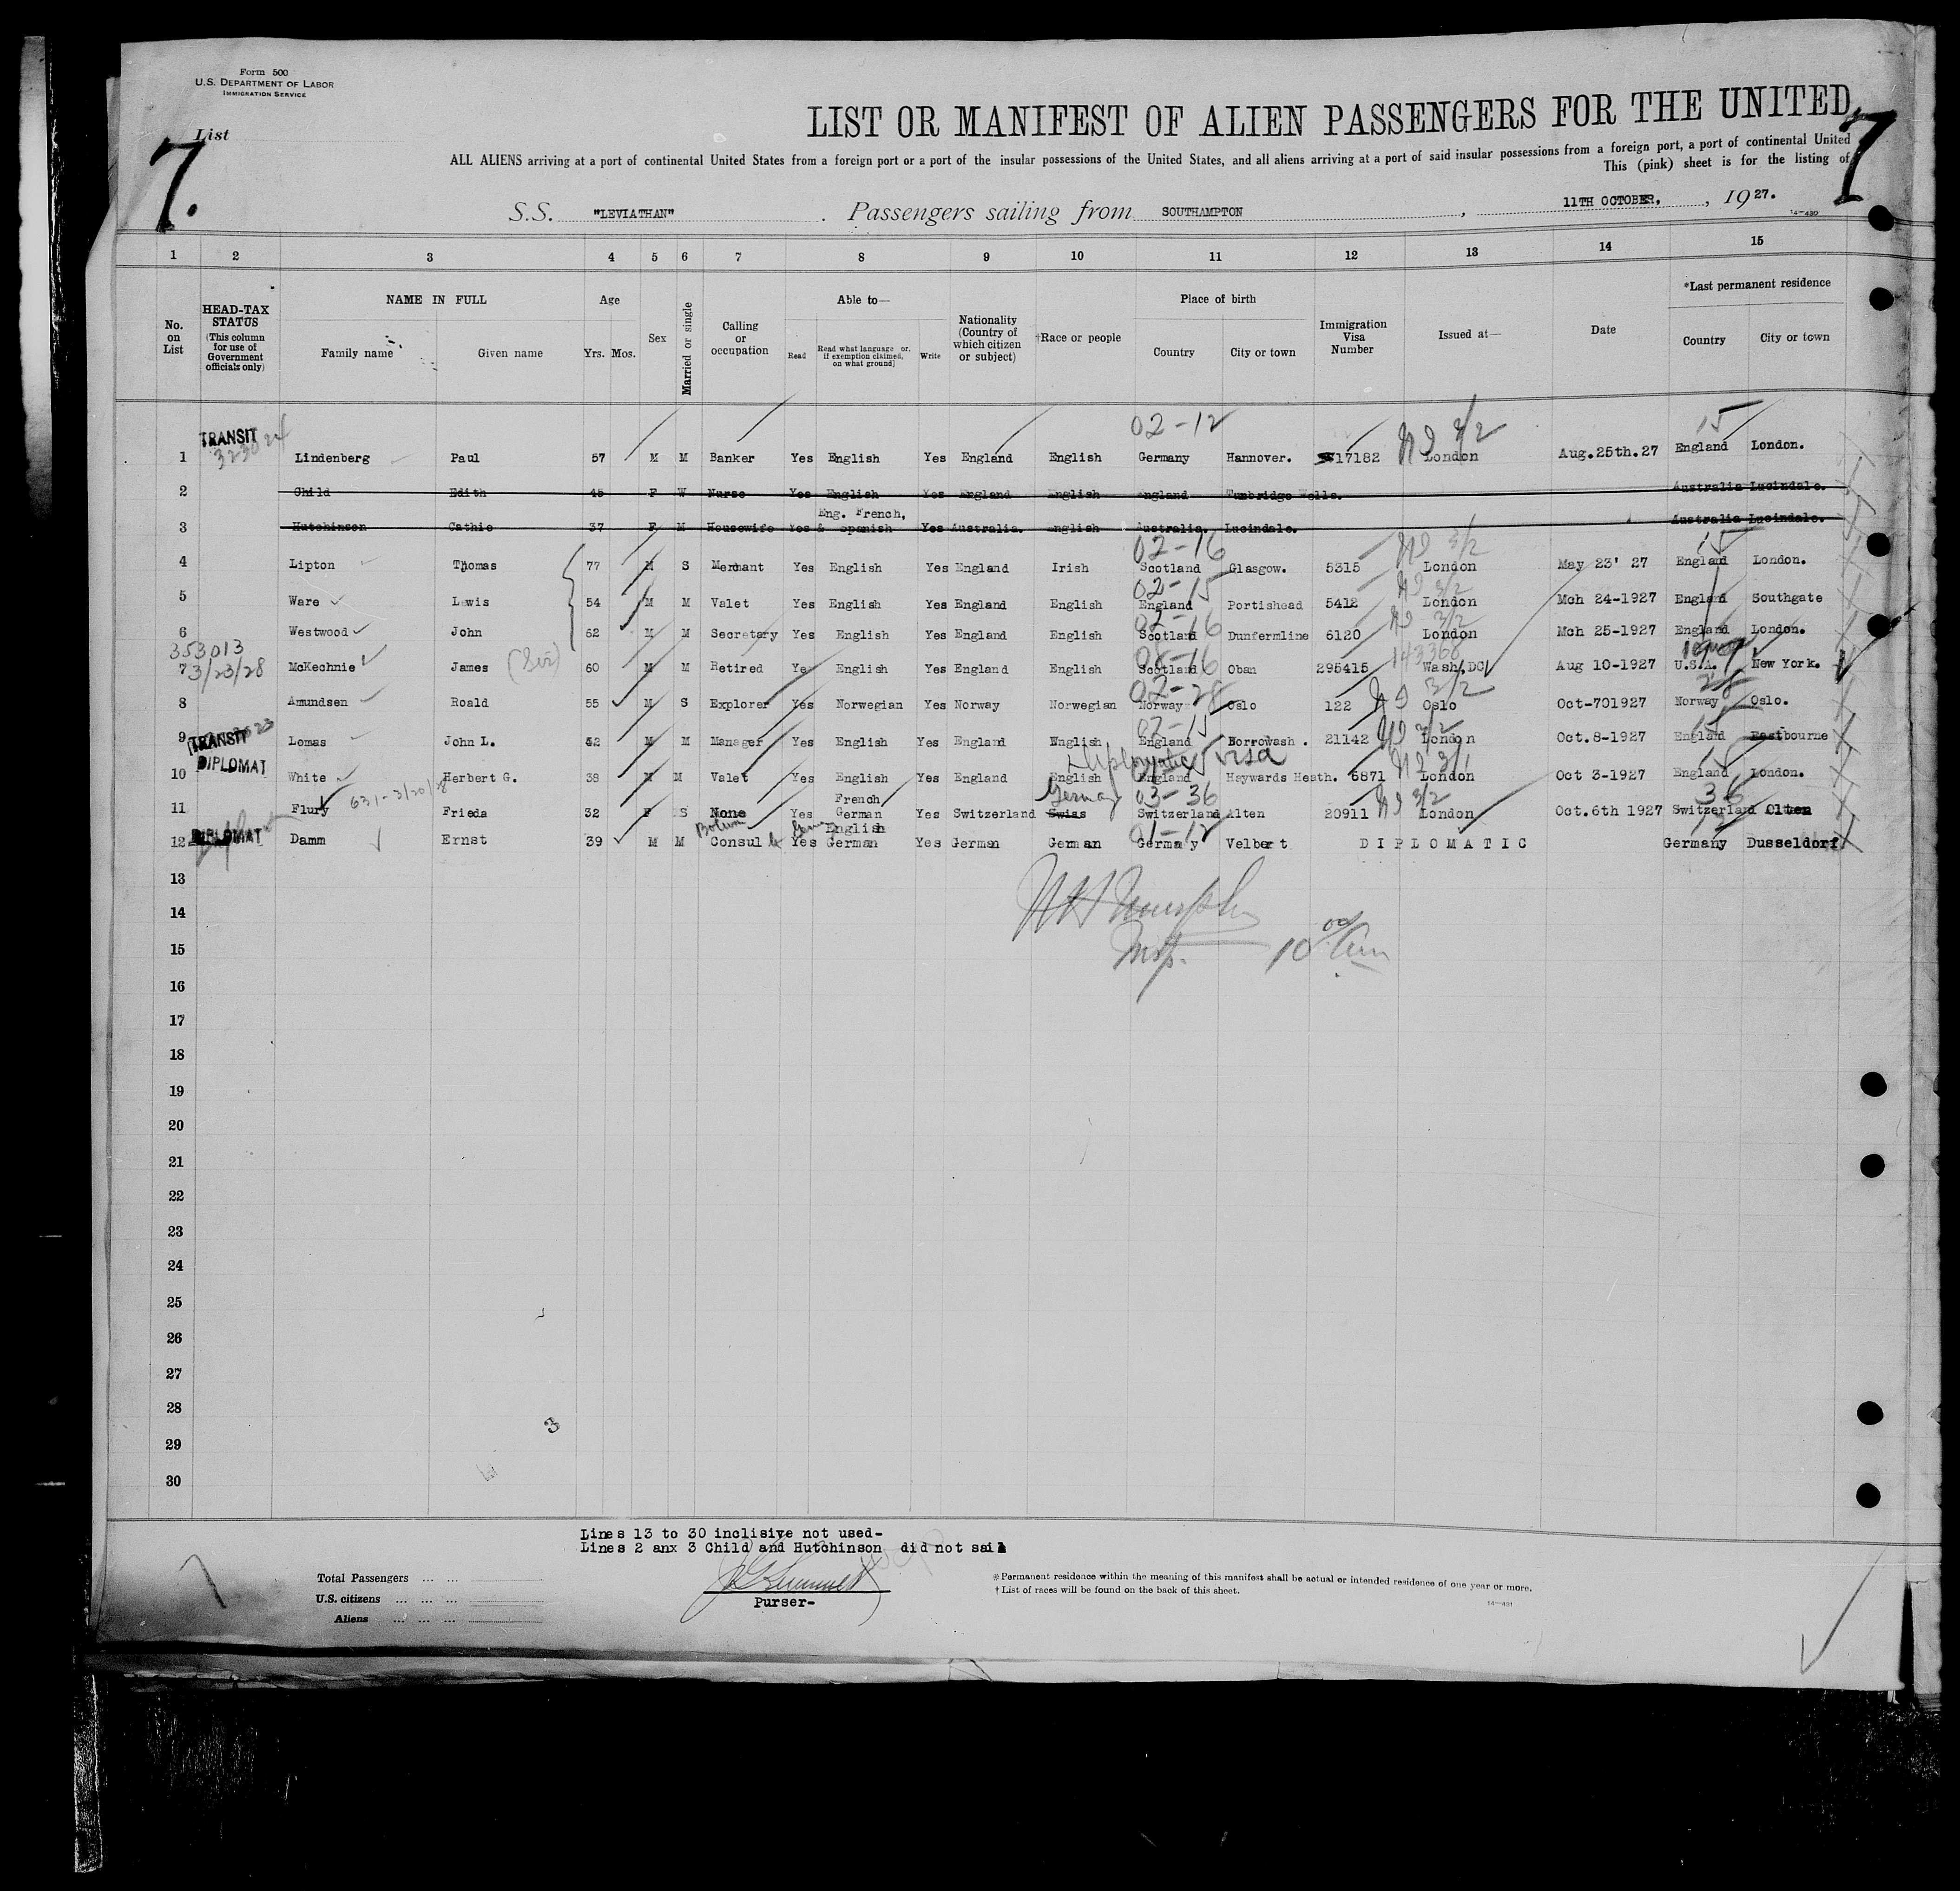 Form 500
U.S. DEPARTMENT OF LABOR
IMMIGRATION SERVICE
List
7.
7
LIST OR MANIFEST OF ALIEN PASSENGERS FOR THE UNITED
ALL ALIENS arriving at a port of continental United States from a foreign port or a port of the insular possessions of the United States, and all aliens arriving at a port of said insular possessions from a foreign port, a port of continental United
This (pink) sheet is for the listing of
S.S. "LEVIATHAN" . Passengers sailing from SOUTHAMPTON , 11TH OCTOBER. , 19 27.
14—480
1 2 3 4 5 6 7 8 9 10 11 12 13 14 15
No. on List
HEAD-TAX STATUS (This column for use of Government officials only)
NAME IN FULL
Family name Given name
Age
Yrs. Mos.
Sex
Married or single
Calling or occupation
Able to—
Read Read what language or, if exemption claimed, on what ground] Write
Nationality (Country of which citizen or subject)
†Race or people
Place of birth
Country City or town
Immigration Visa Number
Issued at—
Date
*Last permanent residence
Country City or town
02-12 15
TRANSIT
1 Lindenberg Paul 57 M M Banker Yes English Yes England English Germany Hannover. 17182 London Aug.25th.27 England London.
2 Child Edith 45 F W Nurse Yes English Yes England English England Tunbridge Wells. Australia Lucindale.
Eng. French,
3 Hutchinson Cathie 37 F M Housewife Yes & Spanish Yes Australia. English Australia. Lucindale. Australia Lucindale.
02-16 15
4 Lipton Thomas 77 M S Merchant Yes English Yes England Irish Scotland Glasgow. 5315 London May 23' 27 England London.
02-15
5 Ware Lewis 54 M M Valet Yes English Yes England English England Portishead 5412 London Mch 24-1927 England Southgate
02-16
6 Westwood John 52 M M Secretary Yes English Yes England English Scotland Dunfermline 6120 London Mch 25-1927 England London.
353013 143368
7 3/23/28 McKechnie James (Sir) 60 M M Retired Yes English Yes England English Scotland Oban 295415 Wash,DC Aug 10-1927 U.S.A. New York.
02-28
8 Amundsen Roald 55 M S Explorer Yes Norwegian Yes Norway Norwegian Norway Oslo 122 Oslo Oct-701927 Norway Oslo.
02-15
TRANSIT
9 Lomas John L. 52 M M Manager Yes English Yes England English England Borrowash . 21142 London Oct.8-1927 England Eastbourne
DIPLOMAT Diplomatic visa
10 White Herbert G. 38 M M Valet Yes English Yes England English England Haywards Heath. 6871 London Oct 3-1927 England London.
631-3/20/28 French Germany 03-36 36
11 Flury Frieda 32 F S None Yes German Yes Switzerland Swiss Switzerland Alten 20911 London Oct.6th 1927 Switzerland Olten
English 01-12
DIPLOMAT
12 Damm Ernst 39 M M Consul Yes German Yes German German Germany Velbert DIPLOMATIC Germany Dusseldorf
13
14
15
Insp. 10 00 Am
16
17
18
19
20
21
22
23
24
25
26
27
28
3
29
30
Lines 13 to 30 inclisive not used-
Lines 2 anx 3 Child and Hutchinson did not sail
Purser-
Total Passengers ... ...
U.S. citizens ... ... ...
Aliens ... ... ...
*Permanent residence within the meaning of this manifest shall be actual or intended residence of one year or more.
†List of races will be found on the back of this sheet.
14—481